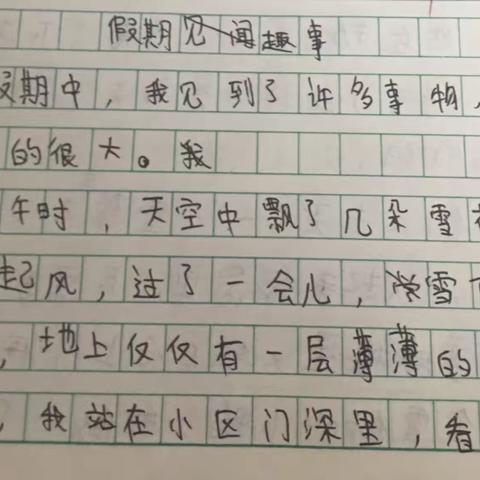 假期见闻趣事
期中，我见到了许多事物，
的很大。我
午时，天空中飘了几朵雪
起风，过了一会儿，雪
，地上仅仅有一层薄薄的
，我站在小区门深里，看